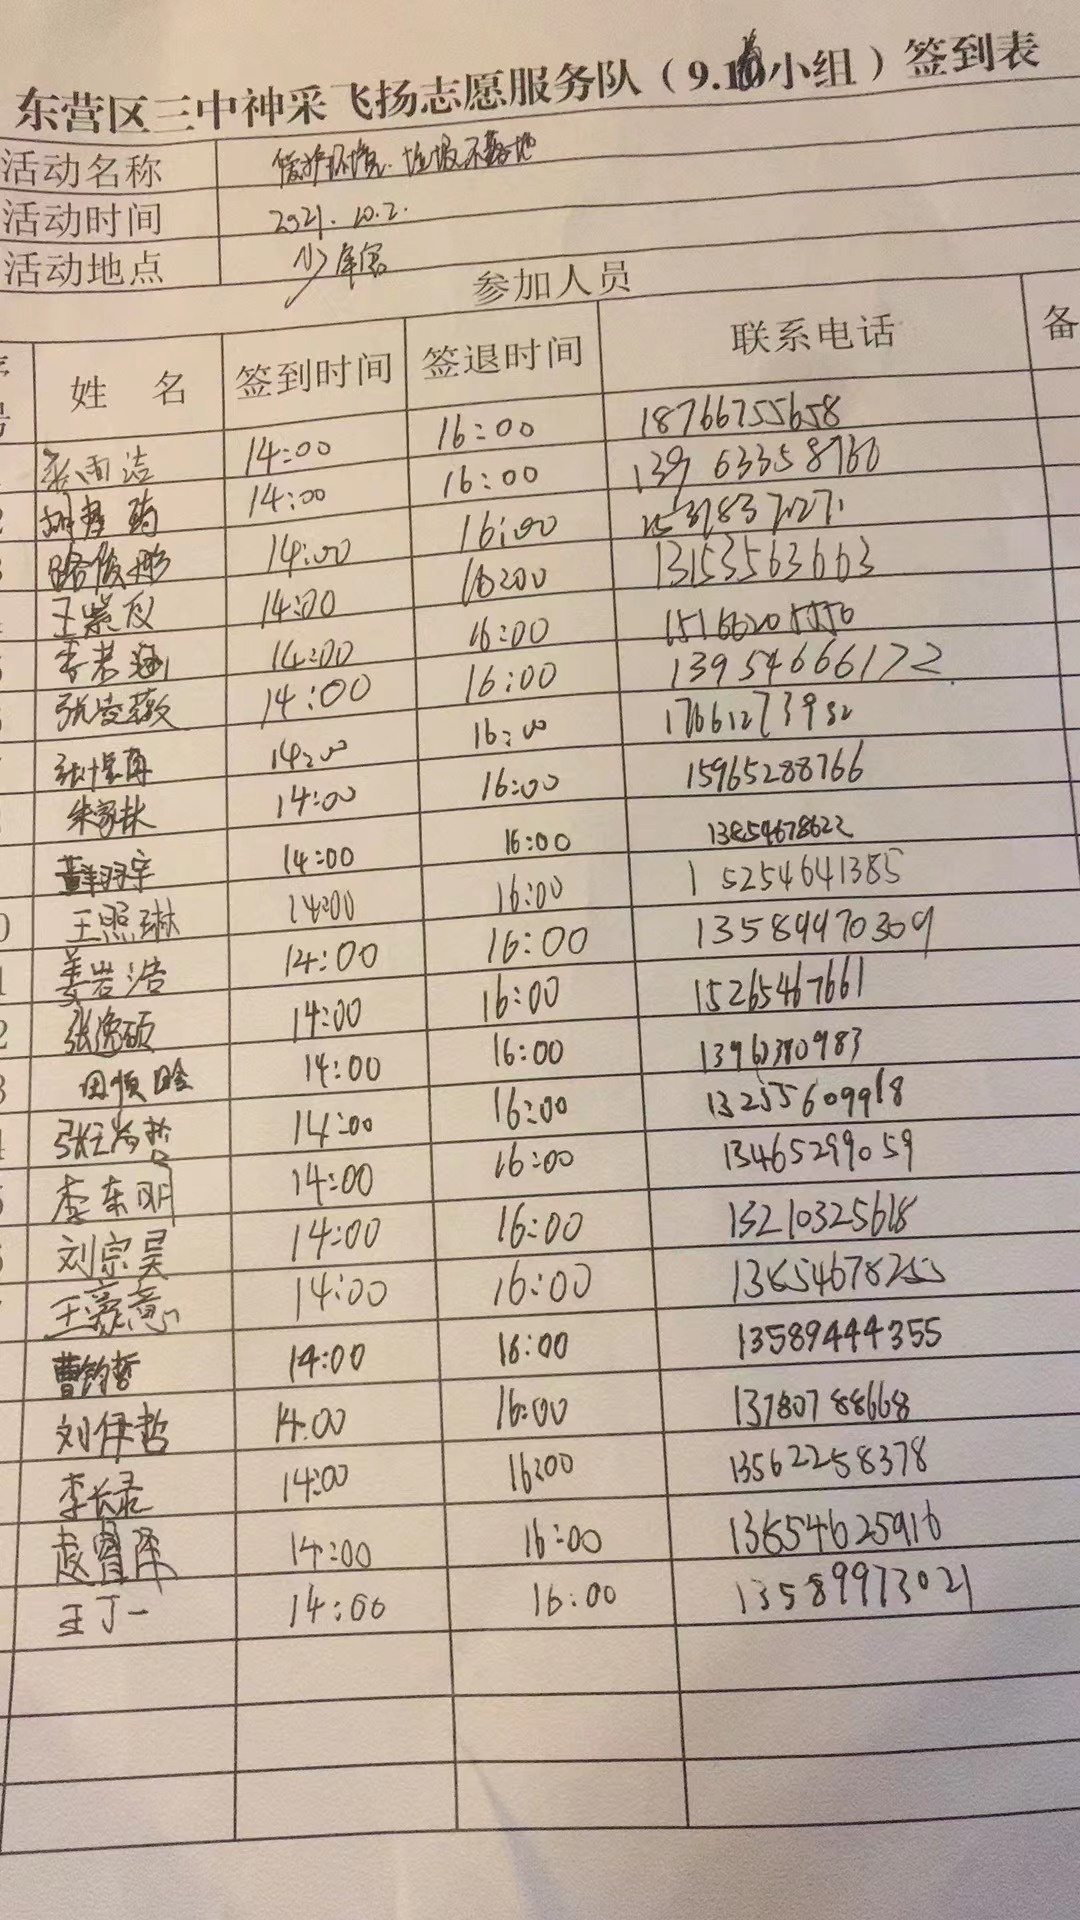 东营区三中神采飞扬志愿服务队（9.1小组）签到表
活动名称 爱护环境 垃圾不落地
活动时间 2021.10.2.
活动地点 少年宫
参加人员
姓 名 签到时间 签退时间 联系电话 备
张雨洁 14:00 16:00 18766755658
14:00 16:00 13963358760
路俊彤 14:00 16:00
王紫仪 14:00 16:00 13153563663
李若涵 14:00 16:00
张凌薇 14:00 16:00 13954666172
14:00 16:00 17661273982
朱家林 14:00 16:00 15965288766
董羽宇 14:00 16:00 13854678622
10 王照琳 14:00 16:00 15254641385
1 姜岩浩 14:00 16:00 13589970309
2 张逸硕 14:00 16:00 15265467661
3 田慎晗 14:00 16:00
4 14:00 16:00 13255609918
5 李东明 14:00 16:00 13465299059
6 刘宗昊 14:00 16:00 13210325618
王豪意 14:00 16:00 13854678255
曹钧哲 14:00 16:00 13589444355
刘伊哲 14:00 16:00 13780788668
李长录 14:00 16:00 13562258378
赵睿泽 14:00 16:00 13854625916
王丁一 14:00 16:00 13589973021